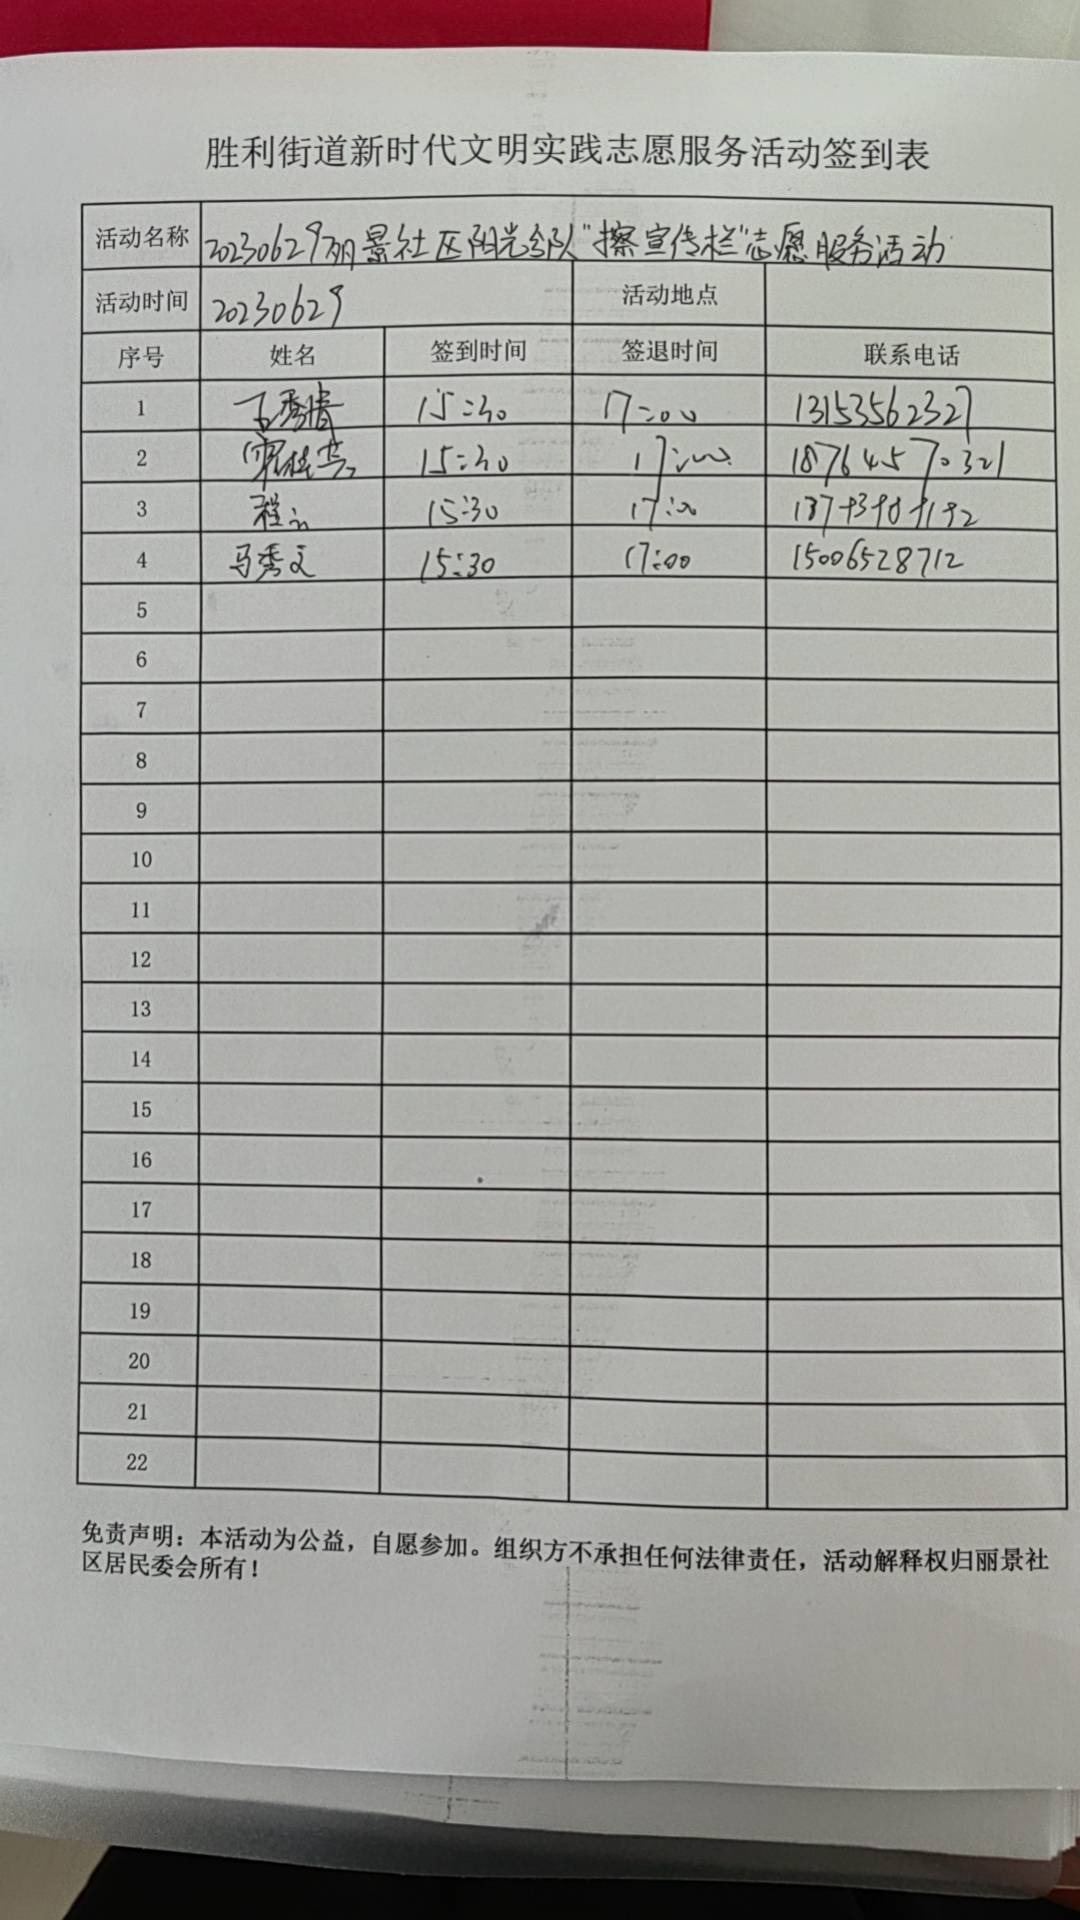 胜利街道新时代文明实践志愿服务活动签到表
活动名称 20230629丽景社区阳光部队"擦宣传栏"志愿服务活动
活动时间 20230629 活动地点
序号 姓名 签到时间 签退时间 联系电话
1 15:30 17:00 13153562327
2 15:30 17:00 18764570321
3 15:30 17:00
4 马秀文 15:30 17:00 15006528712
5
6
7
8
9
10
11
12
13
14
15
16
17
18
19
20
21
22
免责声明：本活动为公益，自愿参加。组织方不承担任何法律责任，活动解释权归丽景社
区居民委会所有！